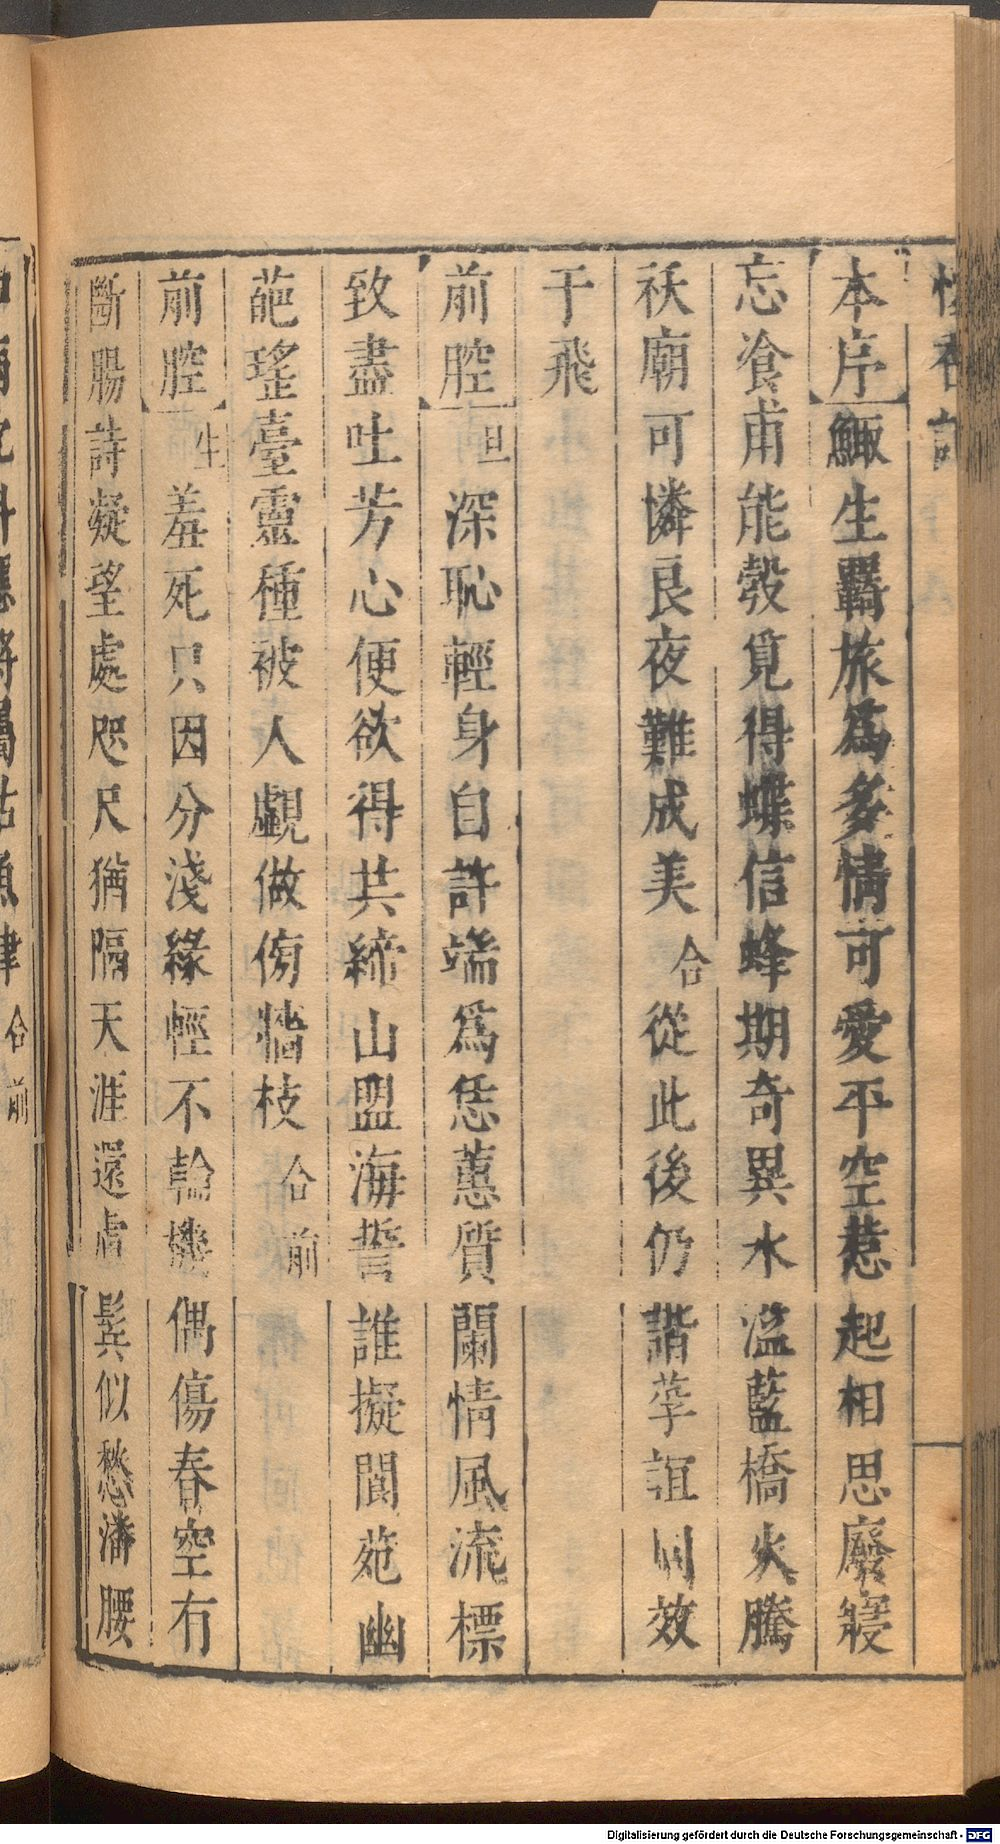 懷香記
本序 鯫生羈旅爲多情可愛平空惹起相思廢寢
忘飡甫能彀覓得蝶信蜂期奇異水溢藍橋火騰
祅廟可憐良夜難成美 合 從此後仍諧莩誼同效
于飛
前腔 旦 深恥輕身自許端爲恁蕙質蘭情風流標
致盡吐芳心便欲得共締山盟海誓誰擬閬苑幽
葩瑤臺靈種被人覷做傍牆枝 合前
前腔 生 羞死只因分淺緣輕不輸機偶傷春空有
斷腸詩凝望處咫尺猶隔天涯還慮鬂似愁潘腰
合前
Digitalisierung gefördert durch die Deutsche Forschungsgemeinschaft - DFG